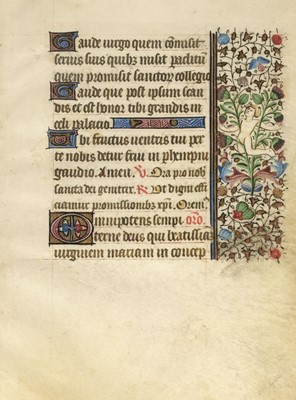 Gaude uirgo quem consuit
seruus suis quibus misit paraclitum
quem promisit sanctorum collegio
Gaude que post ipsum scan
dis et est honor tibi grandis in
celi palacio
Ubi fructus uentris tui per
te nobis detur frui in perhenni
gaudio. Amen. V. Ora pro nob
sancta dei genitrix. R. Ut digni effi
ciamur promissionibz xpi. Orem
Omnipotens sempi oro.
terne deus qui beatissia
uirginem mariam in concep